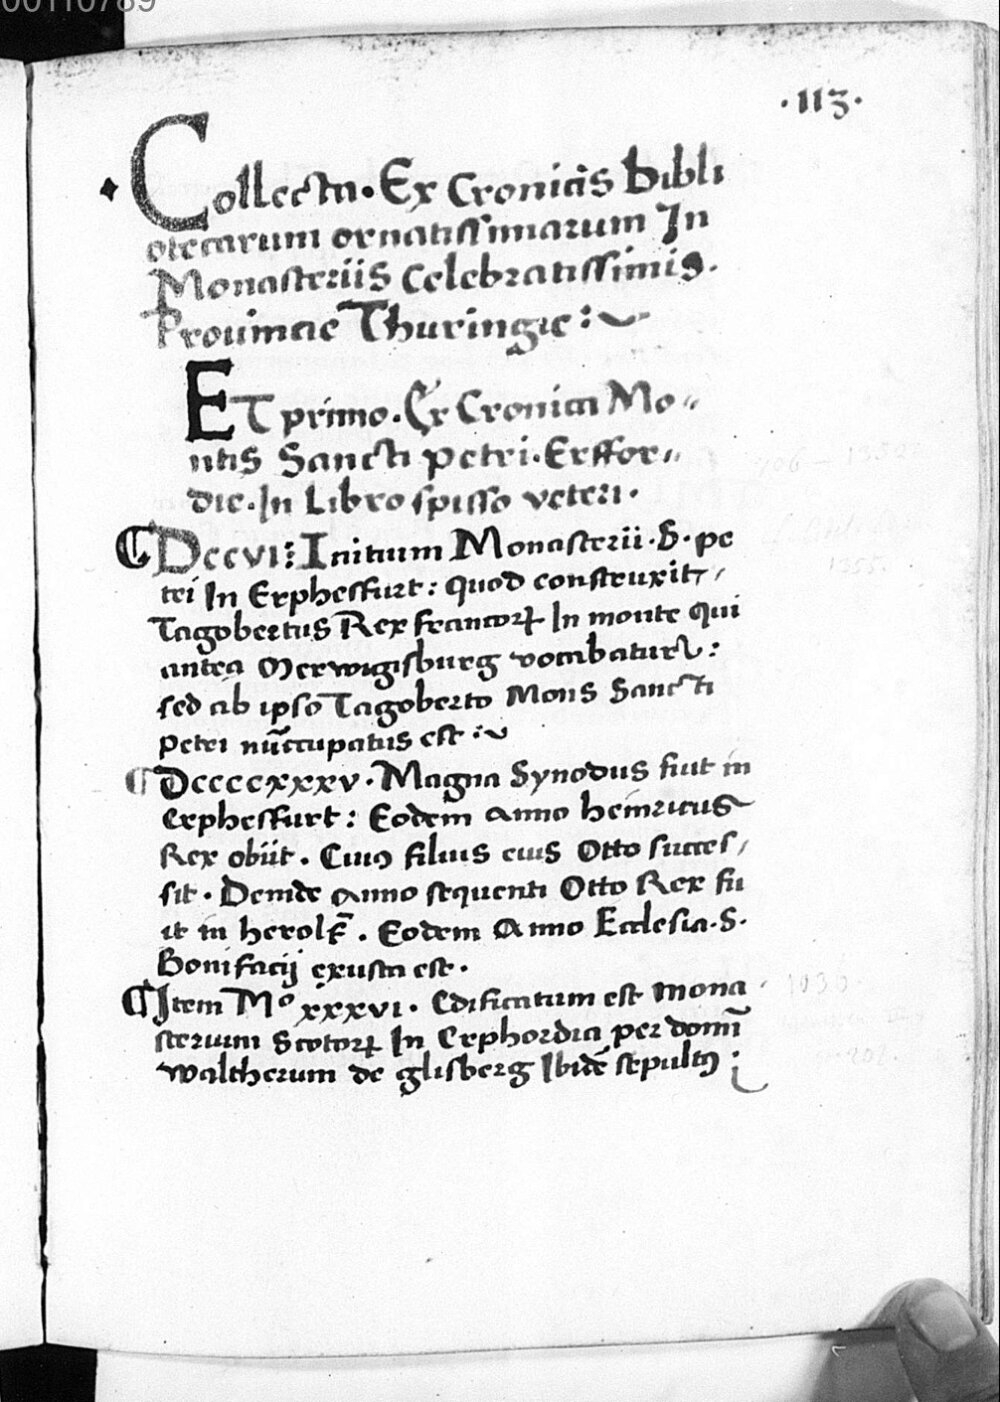 00110789
·113·
Collecta. Ex Cronicis Bibli
otecarum ornatissimarum In
Monasteriis Celebratissimis.
Prouinciae Thuringie :~
ET primo. Ex Cronica Mo〃
ntis Sancti Petri. Erffor〃
die. In Libro spisso veteri.
¶ DCCVI: Initium Monasterii. S. pe
tri In Erphesfurt: quod construxit /
Tagobertus Rex francorꝝ In monte qui
antea Merwigisburg vocabatur :
sed ab ipso Tagoberto Mons Sancti
Petri nūccupatus est :~
¶ DCCCCXXXV. Magna Synodus fuit in
Erphesfurt: Eodem Anno heinricus
Rex obiit. Cuiꝰ filius eius Otto succes/
sit. Deinde anno sequenti Otto Rex fu
it in herolf̄. Eodem Anno Ecclesia. S.
Bonifacij exusta est.
¶ Item Mº xxxvi. Edificatum est mona
sterium Scotorꝝ In Erphordia per domī
waltherum de glisberg Ibidē sepultꝰ :
1030